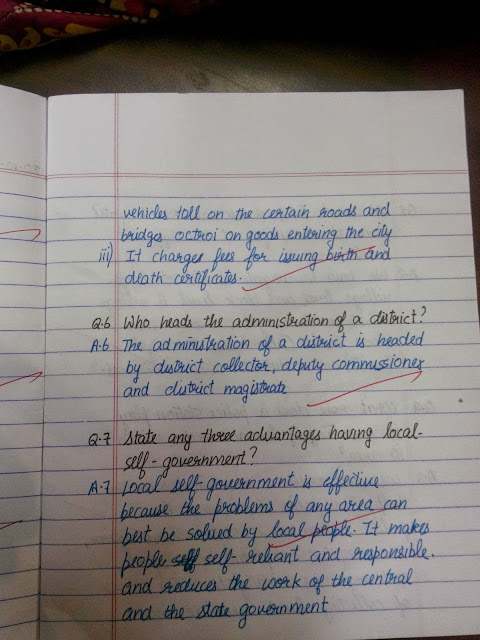 vehicles toll on the certain roads and
bridges octroi on goods entering the city
iii) It charges fees for issuing birth and
death certificates.
Q.6 Who heads the administration of a district?
A.6 The administration of a district is headed
by district collector, deputy commissioner
and district magistrate
Q.7 State any three advantages having local-
self-government?
A.7 Local self-government is effective
because the problems of any area can
best be solved by local people. It makes
people self-reliant and responsible.
and reduces the work of the central
and the state government